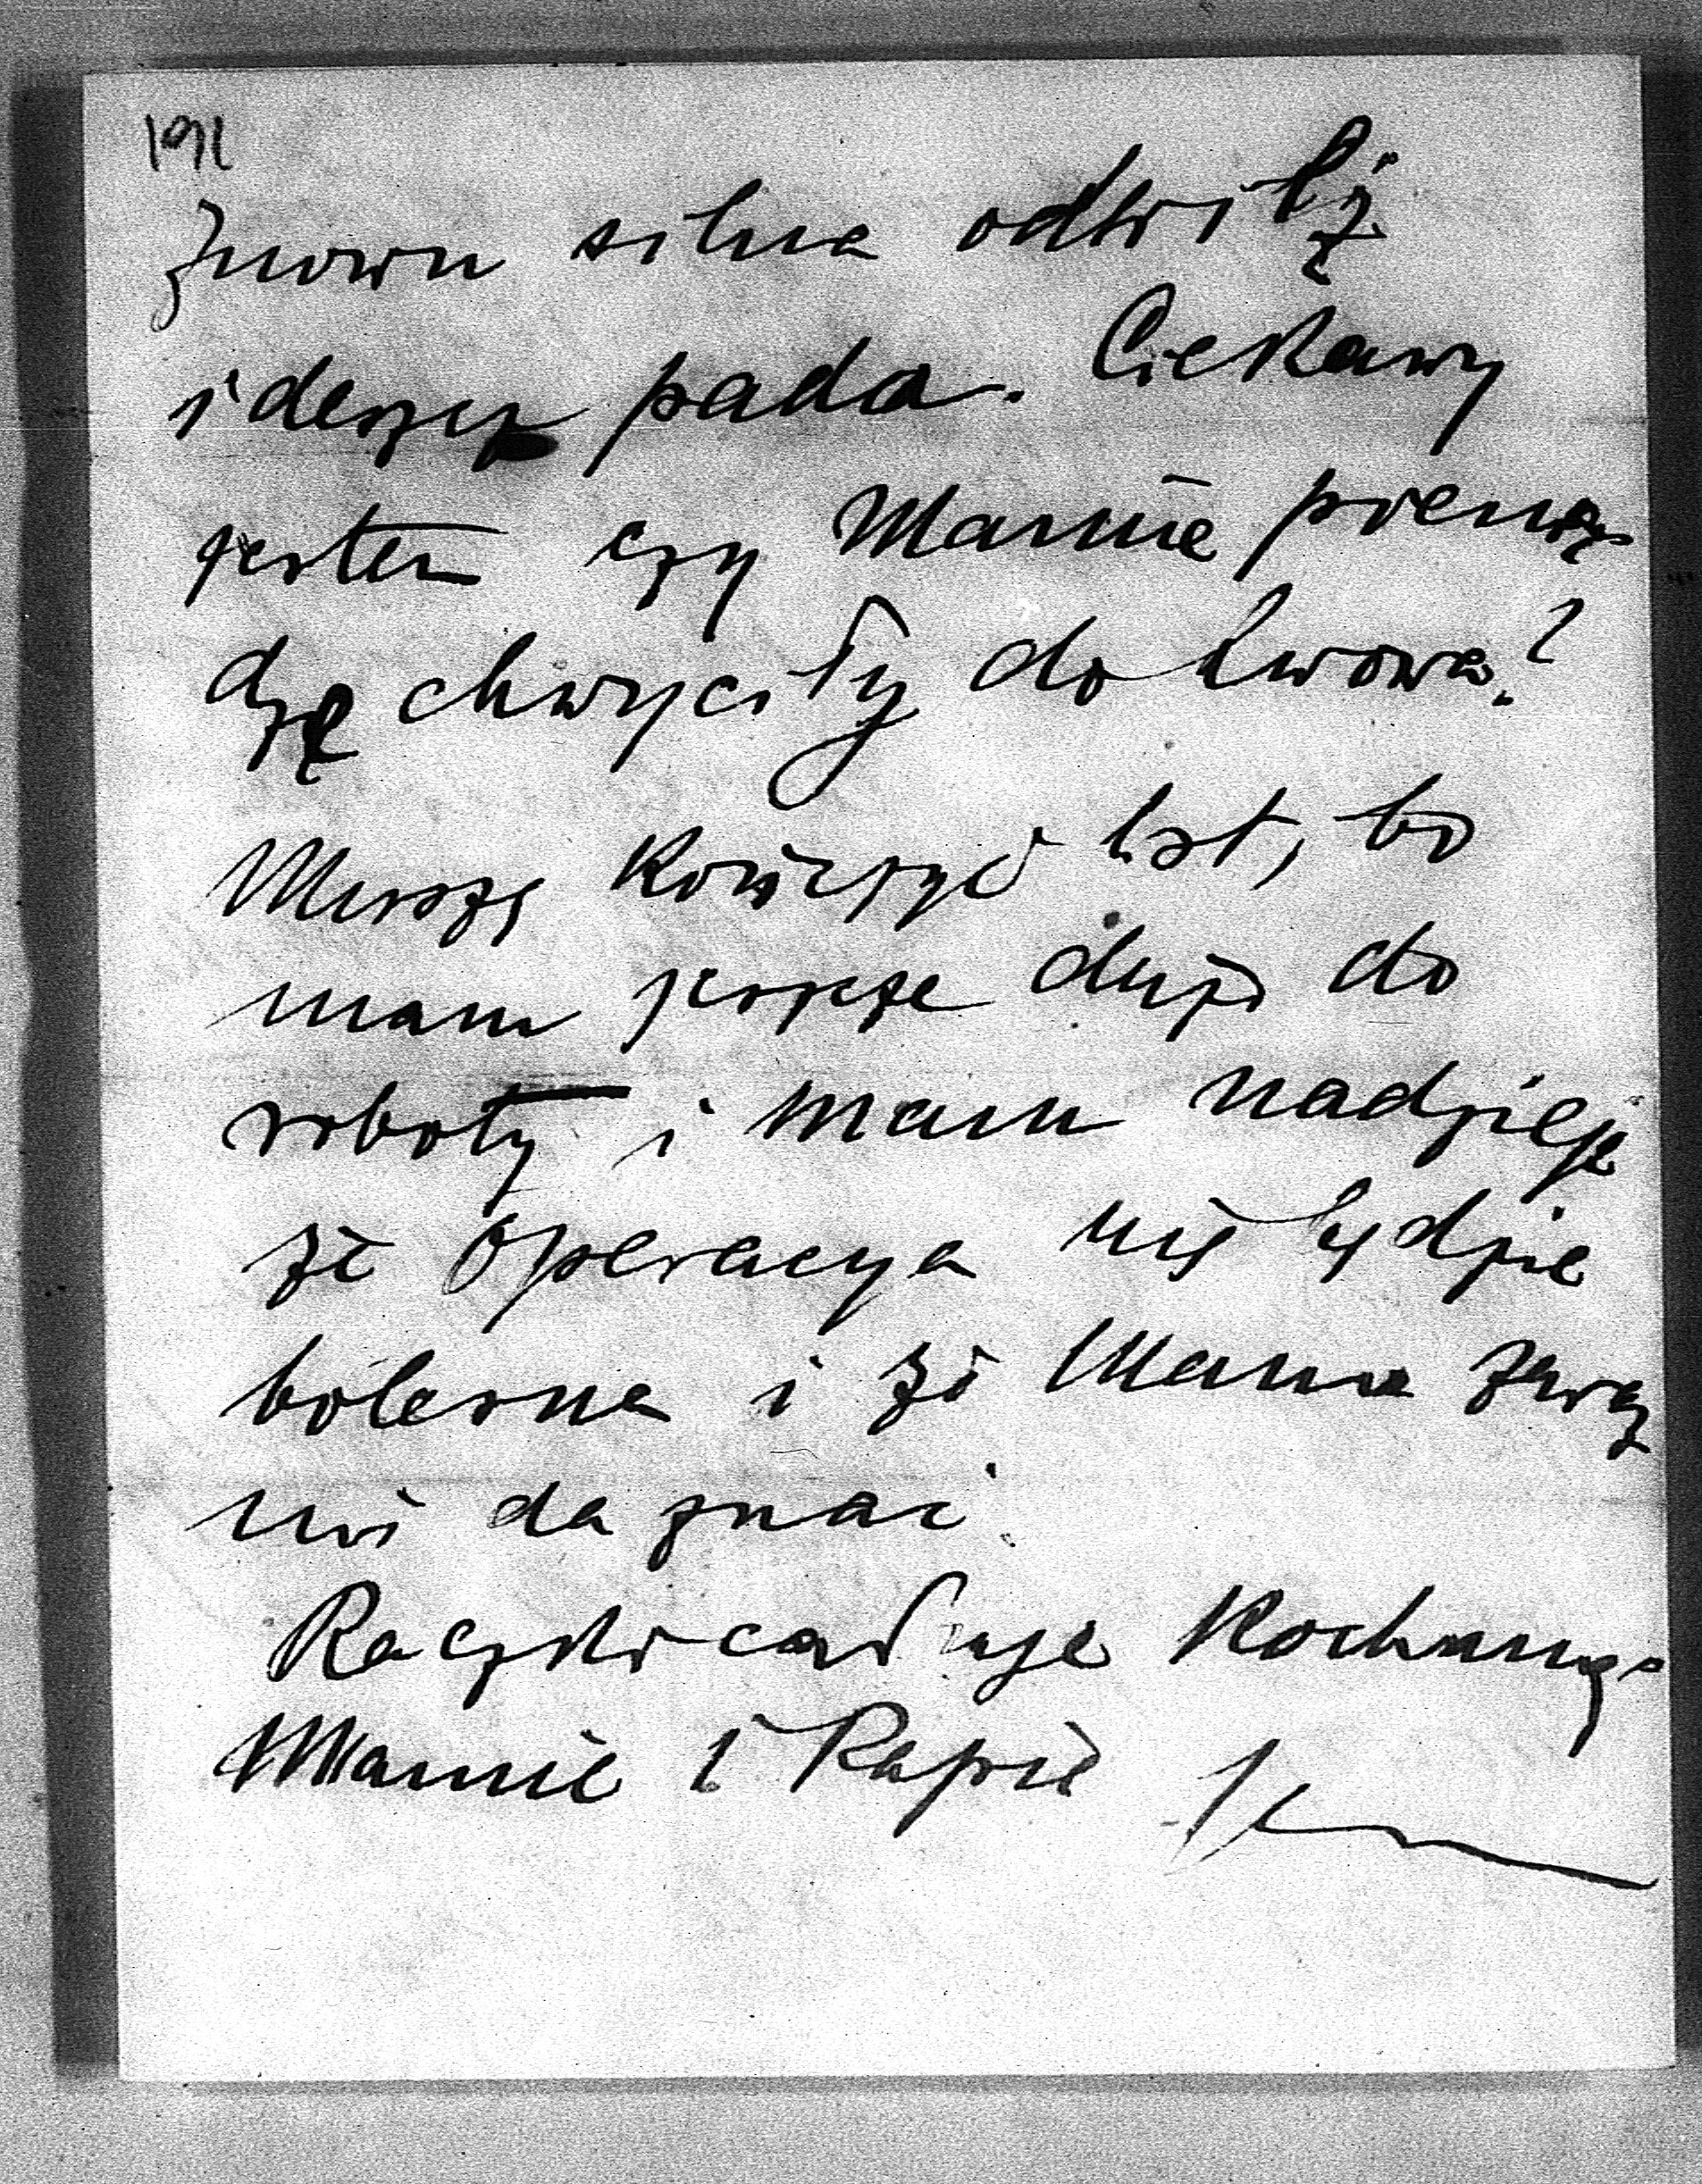 191
Znowu silna odwilż
i deszcz pada. Ciekawy
jestem czy Mamie pienią
dze chwyciły do Lwowa?
Muszę kończyć list, bo
mam jeszcze dużo do
roboty i mam nadzieję
że operacya nie będzie
bolesna i że Mama zaraz
mi da znać.
Rączki całuję Kochanej
Mamie i Papie